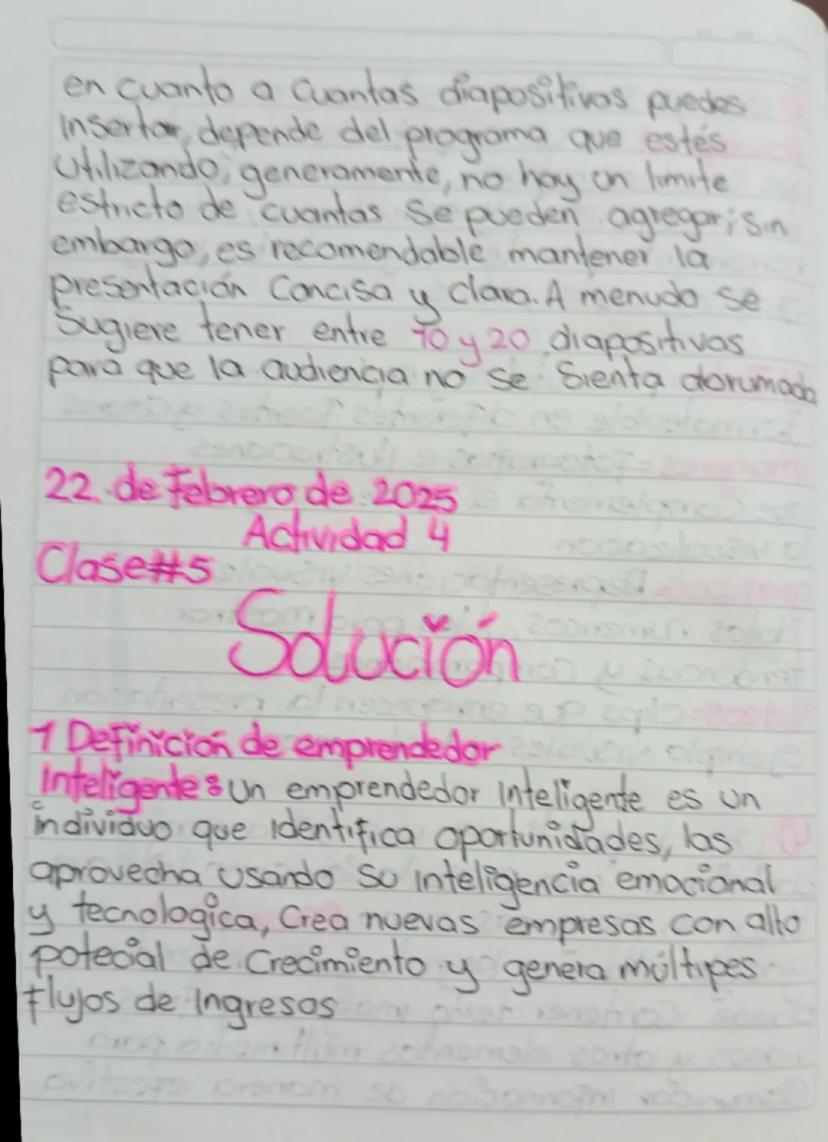 en cuanto a cuantas diapositivas puedes
insertar, depende del programa que estés
utilizando, generamente, no hay un limite
estricto de cuantas se pueden agregar; sin
embargo, es recomendable mantener la
presentación concisa y clara. A menudo se
sugiere tener entre 10 y 20 diapositivas
para que la audiencia no se sienta
22 de Febrero de 2025
Actividad 4
Clase #5
Solución
1 Definición de emprendedor
inteligente: un emprendedor inteligente es un
individuo que identifica oportunidades, las
aprovecha usando su inteligencia emocional
y tecnologica, crea nuevas empresas con alto
potecial de crecimiento y genera múltipes
flujos de ingresos